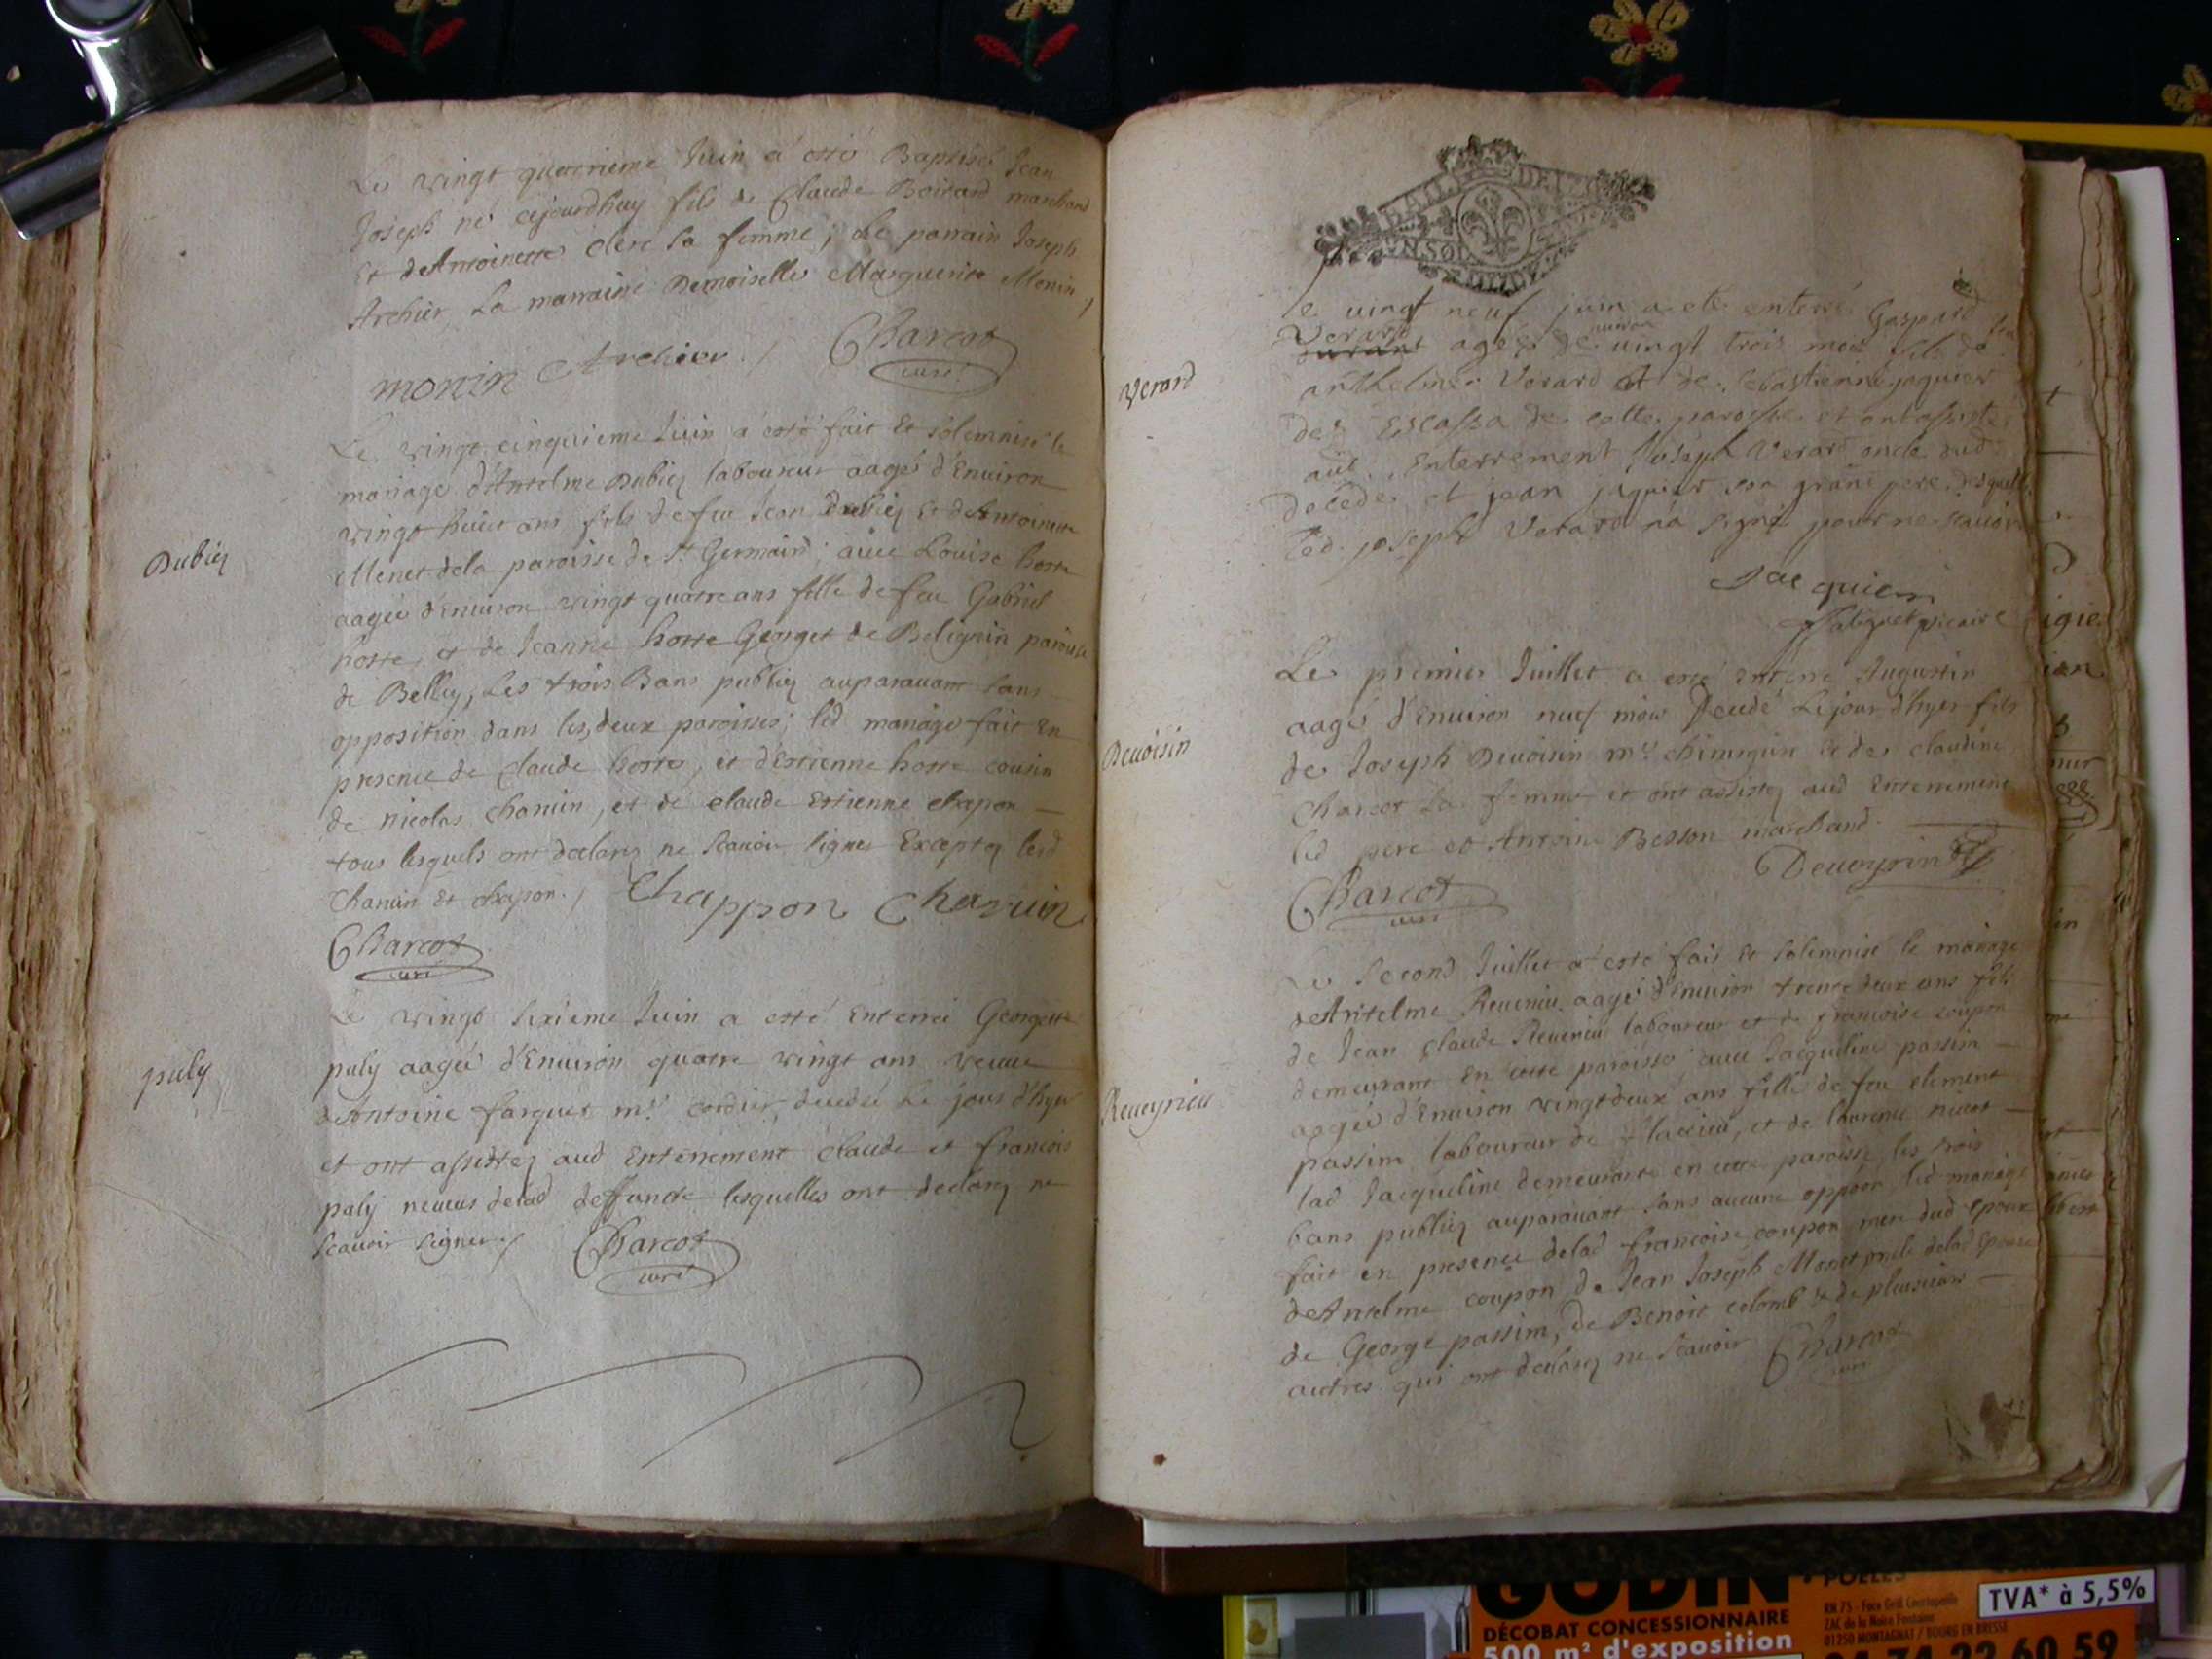 Le vingt quatrieme Juin a esté Baptisé Jean
Joseph né cejourdhuy fils de Claude Boirard marchand
Et deAntoinette clerc sa femme, Le parrain Joseph
Archier La marraine Demoiselle Marguerite Monin
monin Archier Charcot
curé
Le vingt cinquieme Juin a esté fait Et solemnisé le
mariage d'Antelme Dubiez laboureur aagé d'Environ
vingt huict ans fils de feu Jean Dubiez Et deAntoinette
Menet dela paroisse de St Germain; avec Louise hoste
aagée d'environ vingt quatre ans fille de feu Gabriel
hoste, et de Jeanne hoste Georget de Belignin paroisse
de Belley, Les trois Bans publiez auparavant sans
opposition dans les deux paroisses; led mariage fait En
presence de Claude hoste, et d'Estienne hoste cousin
de nicolas Chanuin, et de claude Estienne chapon
tous lesquels ont declarez ne scavoir signer Exceptez lesd
Chanuin et chapon. Chappon Chanuin
Charcot
curé
Dubiez
Le vingt sixieme Juin a esté Enterrée Georgette
puly aagée d'Environ quatre vingt ans veuve
deAntoine farguet mre cordier, decedée Le jour d'hyer
et ont assistez aud Enterrement claude et francois
puly neveus delad deffuncte lesquelles ont declarez ne
scavoir signer. Charcot
curé
puly
le vingt neuf juin a ete enterré Gaspard
Verard agé de vingt trois moi fils de
anthelme Verard et de sebastienne jaquier
des Escassa de cette paroisse et ont assisté
aud. Enterrement Joseph Verard oncle dud
decede et jean jaquier son grand pere desquels
led. joseph Verard n'a signé pour ne scavoir
Jacquier
vicaire
Verard
Le premier Juillet a esté enterré Augustin
aagé d'Environ neuf mois decedé Le jour d'hyer fils
de Joseph Devoisin mre chirurgien et de claudine
Charcot sa femme et ont assistez aud Enterrement
led pere et Antoine Besson marchand.
Charcot
curé
Devoisin
Le second Juillet a esté fait et solemnisé le mariage
deAntelme Reveniu aagé d'Environ trente deux ans fils
de Jean claude Reveniu laboureur et de francoise coupon
demeurant en cette paroisse; avec Jacqueline passim
aagée d'Environ vingt deux ans fille de feu clement
passim laboureur de, et de laurence
lad Jacqueline demeurante en cette paroisse les trois
bans publiez auparavant sans aucune opp̃on led mariage
fait en presence delad francoise coupon mere dud epoux
deAntelme coupon, de Jean Joseph Monet delad Epouse
de George passim, de Benoit colomb et de plusieurs
autres qui ont declarez ne scavoir Charcot
curé
Reveyrieu
GODIN
POELES
DÉCOBAT CONCESSIONNAIRE
500 m² d'exposition
TVA* à 5,5%
01250 MONTAGNAT / BOURG EN BRESSE
04 74 22 60 59